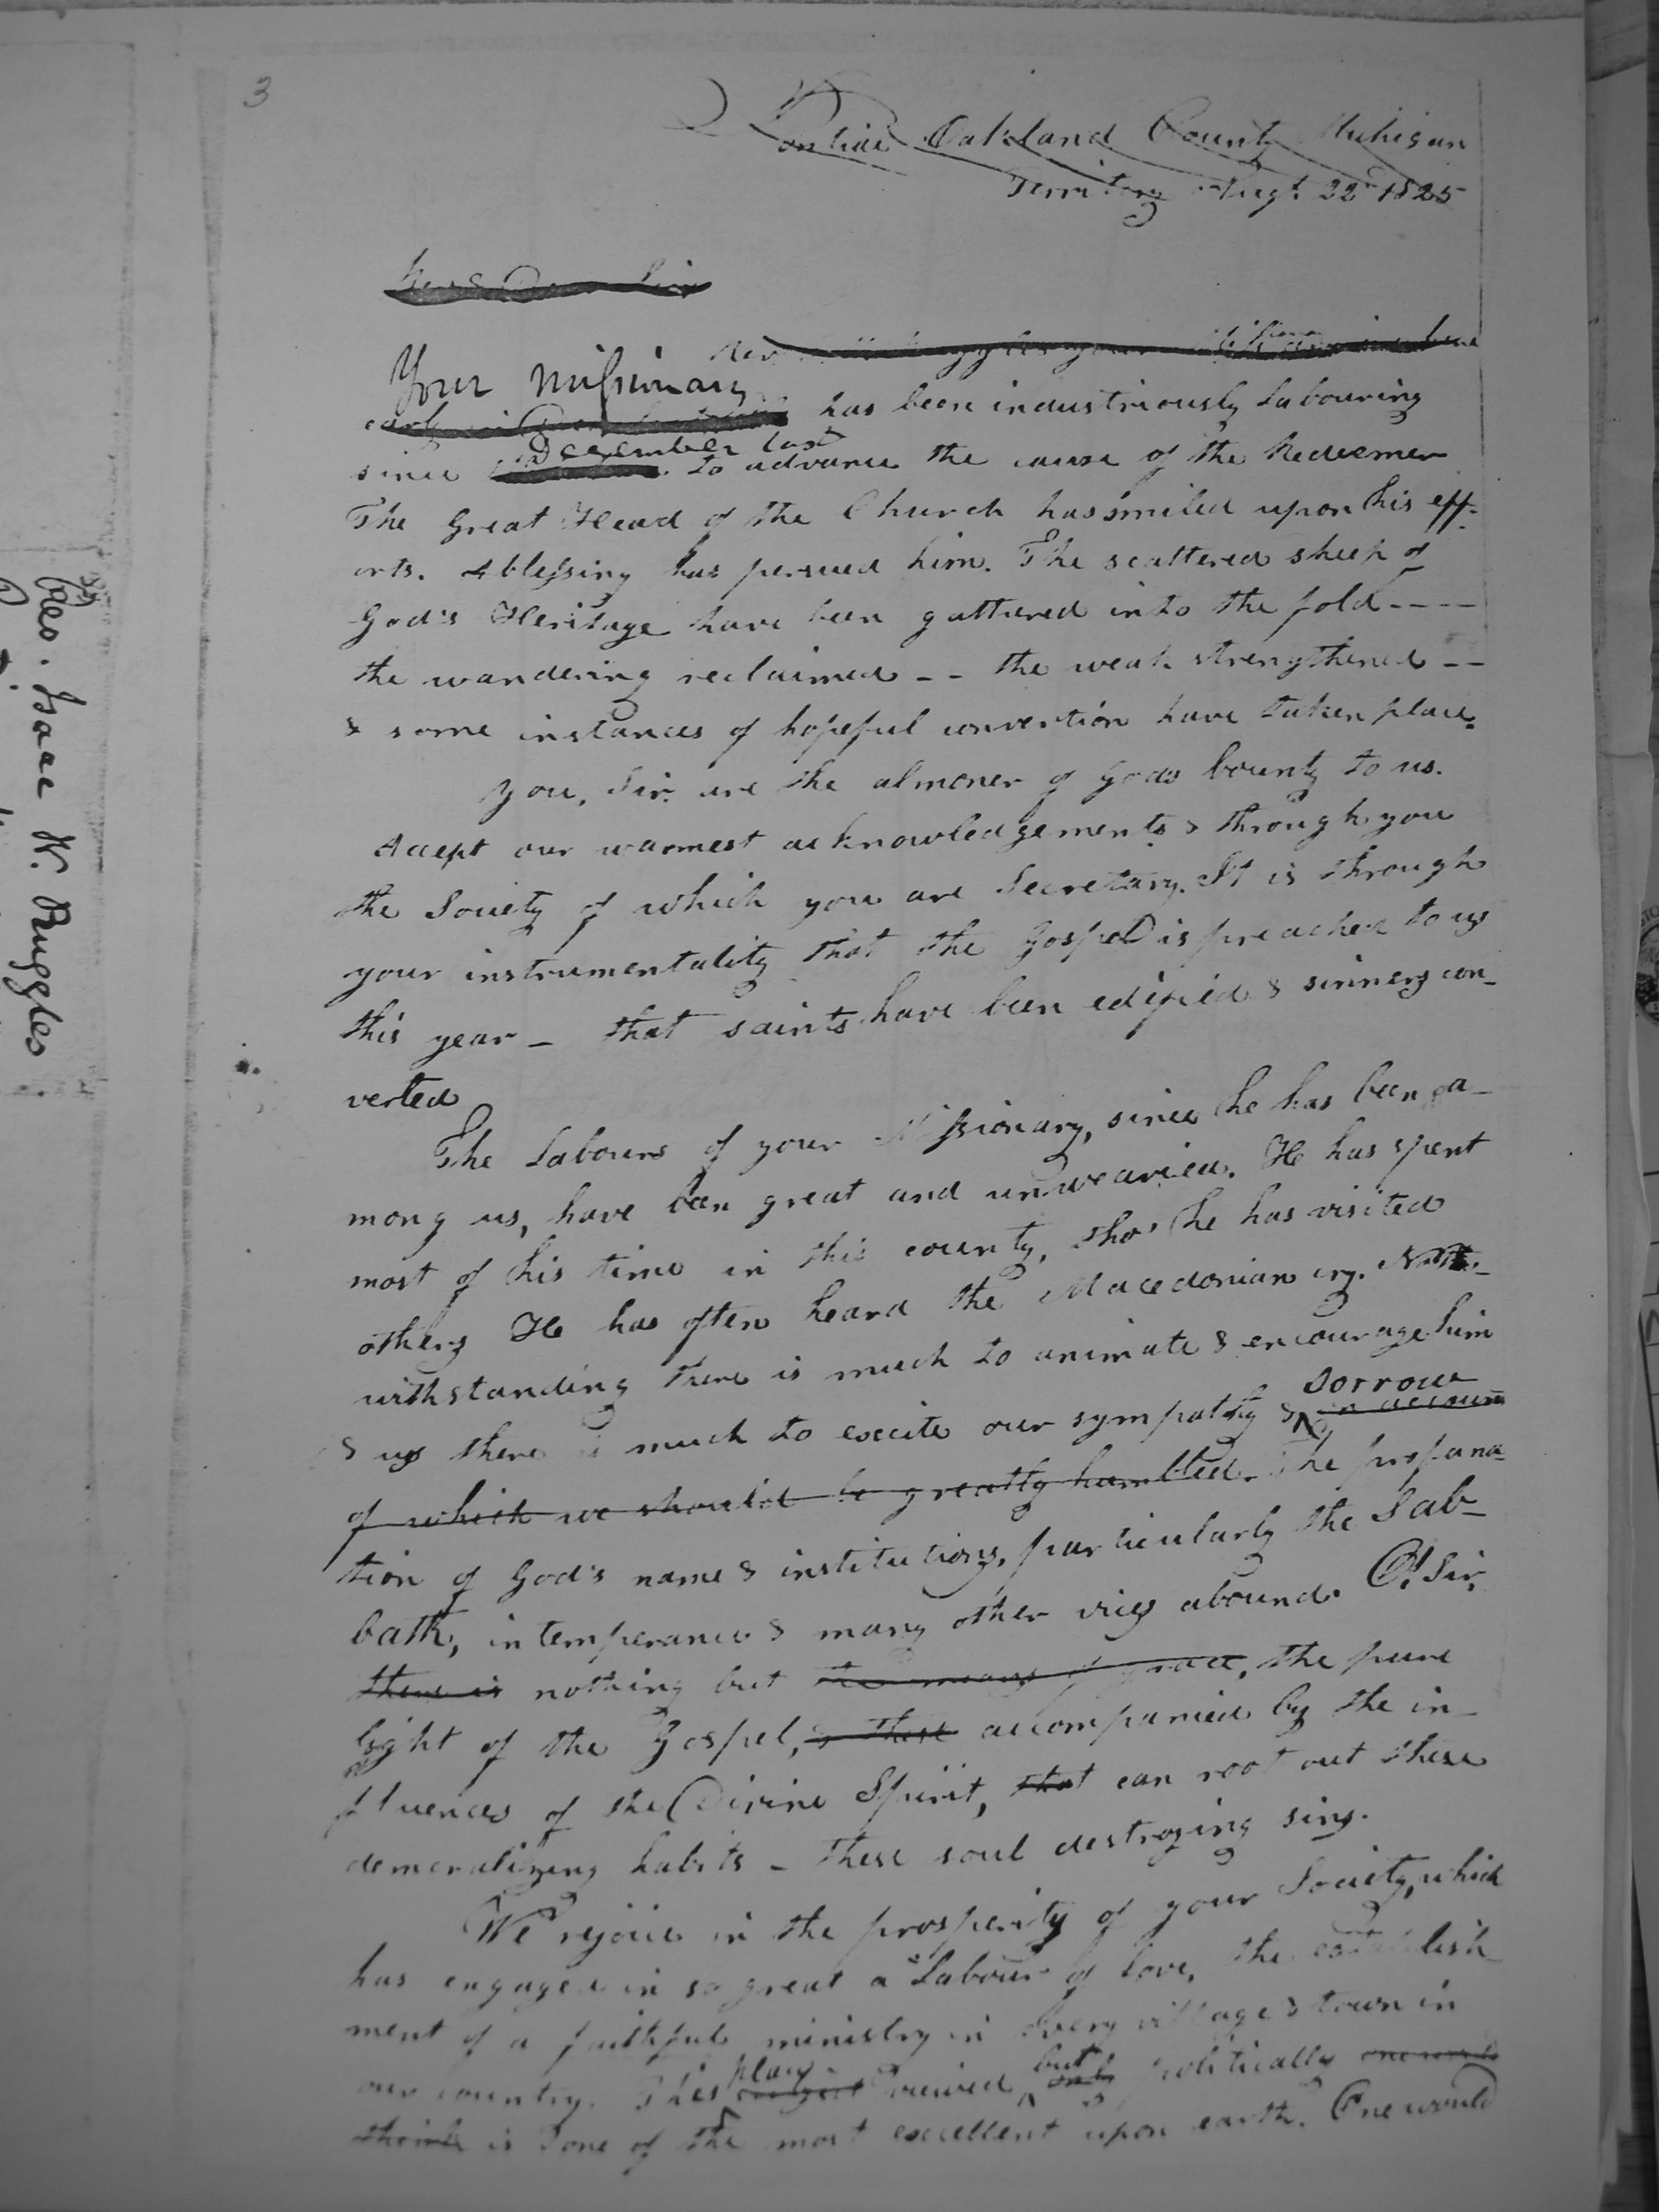 3
Pontiac Oakland County Michigan
Territory Augt. 22d 1825
Your Missionary
has been industriously labouring
since December last to advance the cause of the Redeemer
The Great Head of the Church has smiled upon his eff-
orts. A blessing has persued him. The scattered sheep of
God's Heritage have been gathered into the fold----
the wandering reclaimed -- the weak strengthened --
& some instances of hopeful convertion have taken place.
You, Sir. are the almoner of Gods bounty to us.
Accept our warmest acknowledgements & through you
the Society of which you are Secretary. It is through
your instrumentality that the Gospel is preached to us
this year - that saints have been edified & sinners con-
verted
The Labours of your Missionary, since he has been a-
mong us, have been great and unwearied. He has spent
most of his time in this county, tho' he has visited
others He has often heard the Macedonian cry. Not-
withstanding there is much to animate & encourage him
& us there is much to excite our sympathy & sorrow
of which we should be greatly humbled. The profana-
tion of God's name & institutions, particularly the Sab-
bath, intemperance & many other vices abound. O! Sir,
there is nothing but the means of grace, the pure
light of the Gospel, & these accompanied by the in-
fluences of the Divine Spirit, that can root out these
demoralizing habits - these soul destroying sins.
We rejoice in the prosperity of your Society, which
has engaged in so great a Labour of love, the establish
ment of a faithful ministry in every village & town in
our country. This plan viewed but only politically
think is one of the most excellent upon earth. One would
Rev. Isaac W. Ruggles